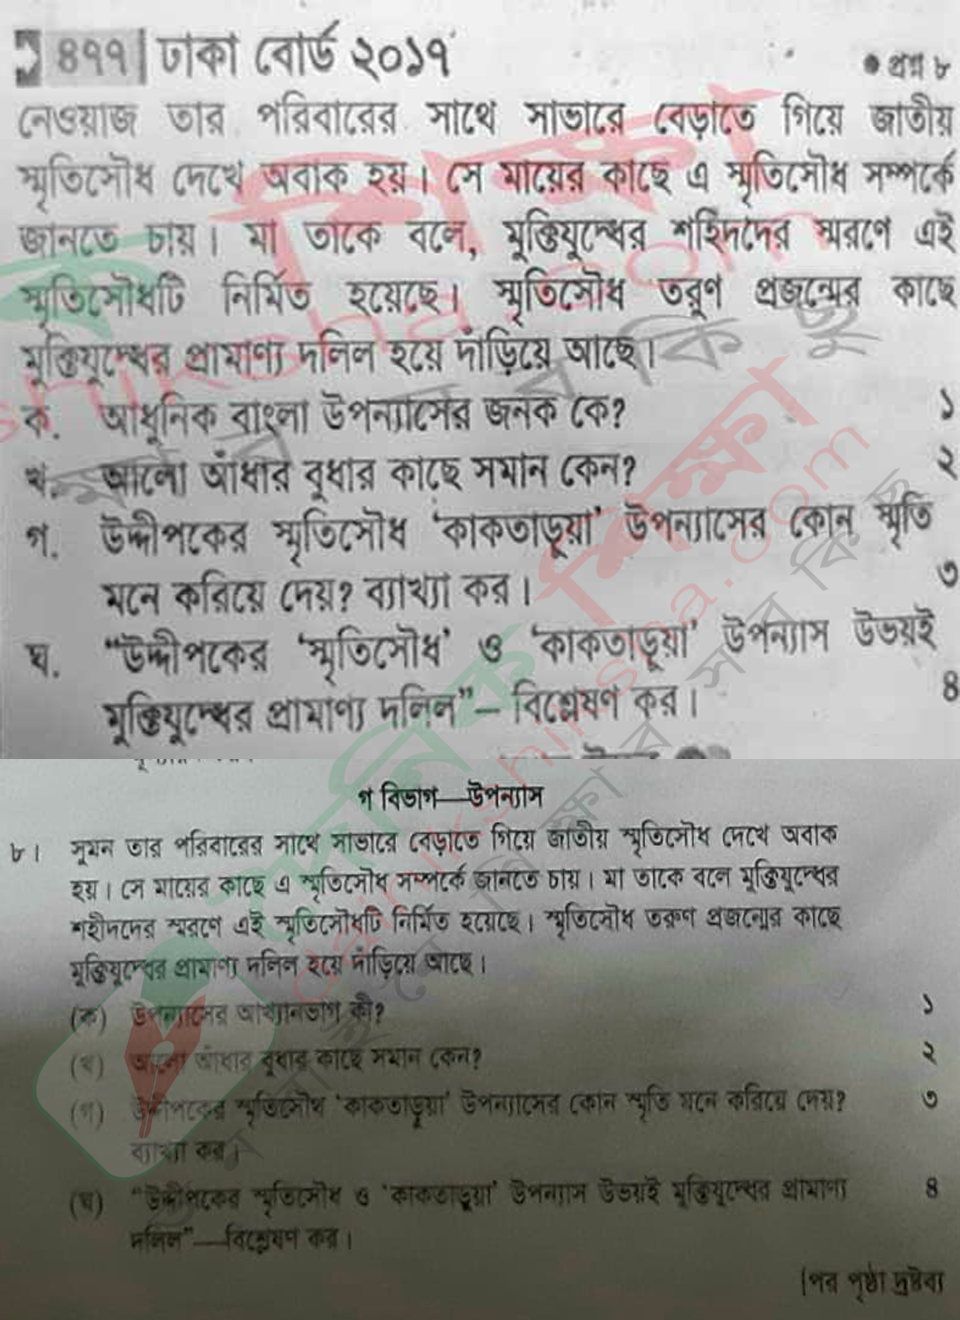 ৪৭৭ | ঢাকা বোর্ড ২০১৭
● প্রশ্ন ৮
নেওয়াজ তার পরিবারের সাথে সাভারে বেড়াতে গিয়ে জাতীয়
স্মৃতিসৌধ দেখে অবাক হয়। সে মায়ের কাছে এ স্মৃতিসৌধ সম্পর্কে
জানতে চায়। মা তাকে বলে, মুক্তিযুদ্ধের শহিদদের স্মরণে এই
স্মৃতিসৌধটি নির্মিত হয়েছে। স্মৃতিসৌধ তরুণ প্রজন্মের কাছে
মুক্তিযুদ্ধের প্রামাণ্য দলিল হয়ে দাঁড়িয়ে আছে।
ক. আধুনিক বাংলা উপন্যাসের জনক কে? ১
খ. আলো আঁধার বুধার কাছে সমান কেন? ২
গ. উদ্দীপকের স্মৃতিসৌধ ‘কাকতাড়ুয়া’ উপন্যাসের কোন স্মৃতি
মনে করিয়ে দেয়? ব্যাখ্যা কর। ৩
ঘ. “উদ্দীপকের ‘স্মৃতিসৌধ’ ও ‘কাকতাড়ুয়া’ উপন্যাস উভয়ই
মুক্তিযুদ্ধের প্রামাণ্য দলিল”– বিশ্লেষণ কর। ৪
গ বিভাগ—উপন্যাস
৮। সুমন তার পরিবারের সাথে সাভারে বেড়াতে গিয়ে জাতীয় স্মৃতিসৌধ দেখে অবাক
হয়। সে মায়ের কাছে এ স্মৃতিসৌধ সম্পর্কে জানতে চায়। মা তাকে বলে মুক্তিযুদ্ধের
শহীদদের স্মরণে এই স্মৃতিসৌধটি নির্মিত হয়েছে। স্মৃতিসৌধ তরুণ প্রজন্মের কাছে
মুক্তিযুদ্ধের প্রামাণ্য দলিল হয়ে দাঁড়িয়ে আছে।
(ক) উপন্যাসের আখ্যানভাগ কী? ১
(খ) আলো আঁধার বুধার কাছে সমান কেন? ২
(গ) উদ্দীপকের স্মৃতিসৌধ ‘কাকতাড়ুয়া’ উপন্যাসের কোন স্মৃতি মনে করিয়ে দেয়? ৩
ব্যাখ্যা কর।
(ঘ) “উদ্দীপকের স্মৃতিসৌধ ও ‘কাকতাড়ুয়া’ উপন্যাস উভয়ই মুক্তিযুদ্ধের প্রামাণ্য ৪
দলিল”—বিশ্লেষণ কর।
[পর পৃষ্ঠা দ্রষ্টব্য